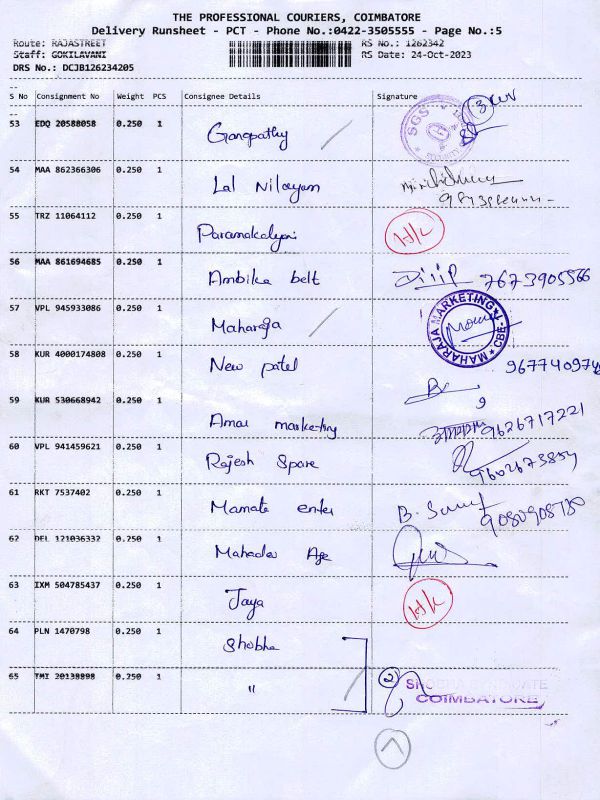 THE PROFESSIONAL COURIERS, COIMBATORE
Delivery Runsheet - PCT - Phone No.:0422-3505555 - Page No.:5
Route: RAJASTREET RS No.: 1262342
Staff: GOKILAVANI RS Date: 24-Oct-2023
DRS No.: DCJB126234205
S No Consignment No Weight PCS Consignee Details Signature
53 EDQ 20588058 0.250 1 Ganapathy SGS SECURITY 3
54 MAA 862366306 0.250 1 Lal Nilayam
55 TRZ 11064112 0.250 1 Paramakalyani H/L
56 MAA 861694685 0.250 1 Ambika belt Dilip 7673905566
57 VPL 945933086 0.250 1 Maharaja MAHARAJA MARKETING CBE-1
58 KUR 4000174808 0.250 1 New patel
59 KUR 530668942 0.250 1 Amar marketing 9626717221
60 VPL 941459621 0.250 1 Rajesh Spare
61 RKT 7537402 0.250 1 Mamata enter B.
62 DEL 121036332 0.250 1 Mahadev Age
63 IXM 504785437 0.250 1 Jaya H/L
64 PLN 1470798 0.250 1 Shobha
65 TMI 20138898 0.250 1 " 2 COIMBATORE